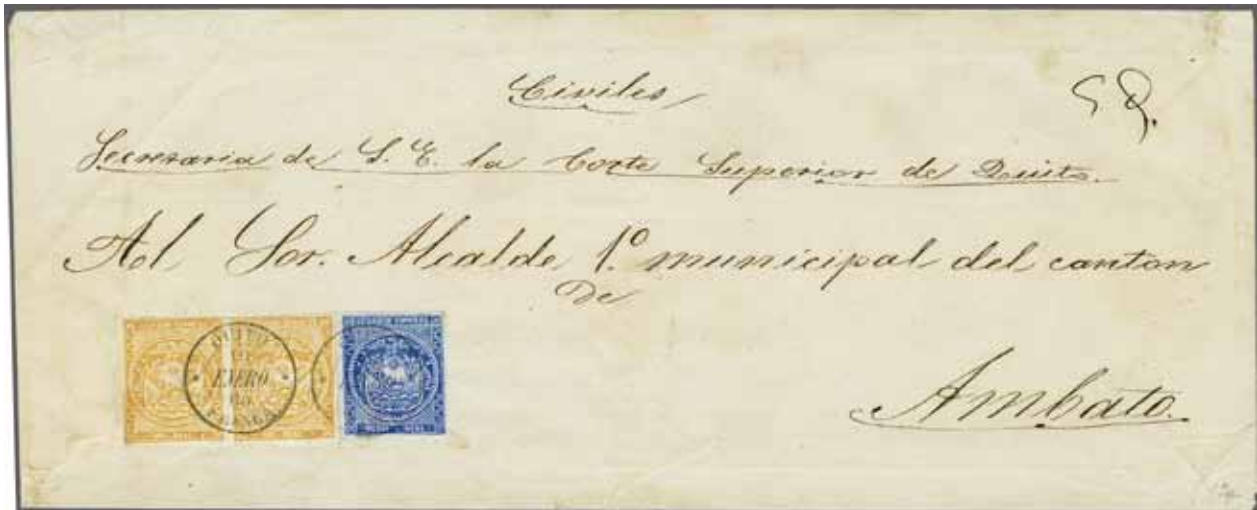 Civiles
Secretaria de S. E. la Corte Superior de Quito.
Al Sor. Alcalde 1º municipal del canton
de
Ambato.
QUITO
ENERO
FRANCA